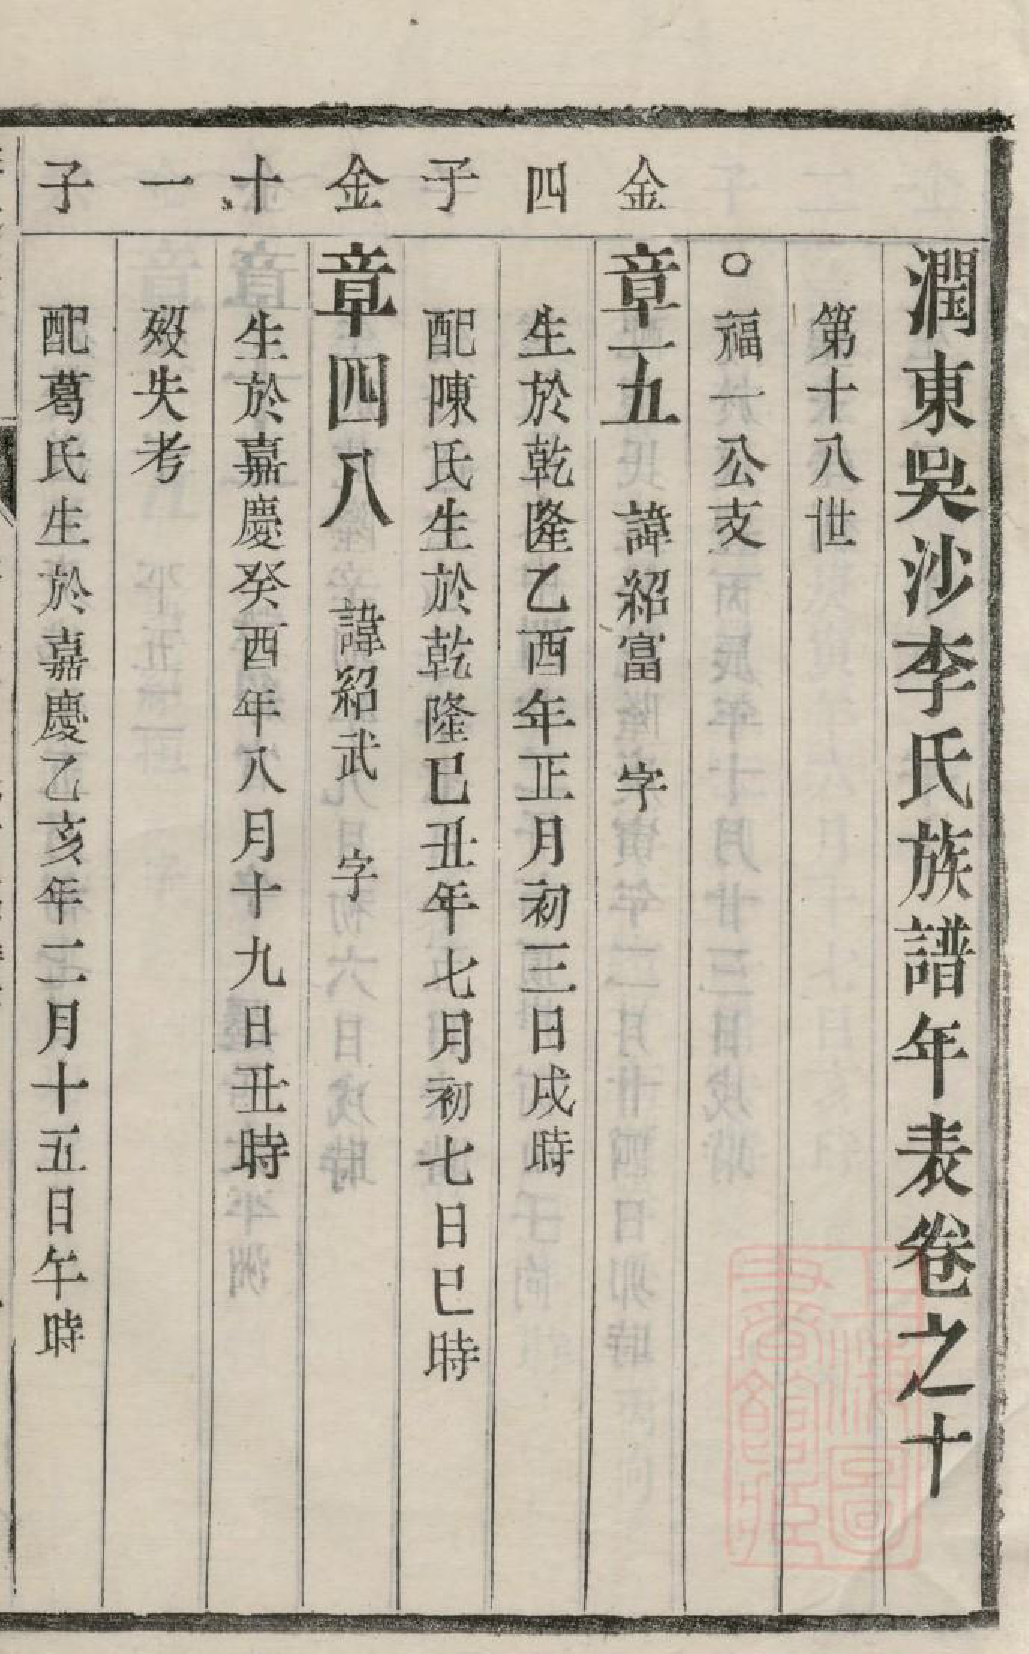 潤東吳沙李氏族譜年表卷之十
第十八世
○福一公支
金
章五 諱紹富 字
四
生於乾隆乙酉年正月初三日戌時
子
配陳氏生於乾隆巳丑年七月初七日巳時
金
章四八 諱紹武 字
十
生於嘉慶癸酉年八月十九日丑時
一
歿失考
子
配葛氏生於嘉慶乙亥年二月十五日午時